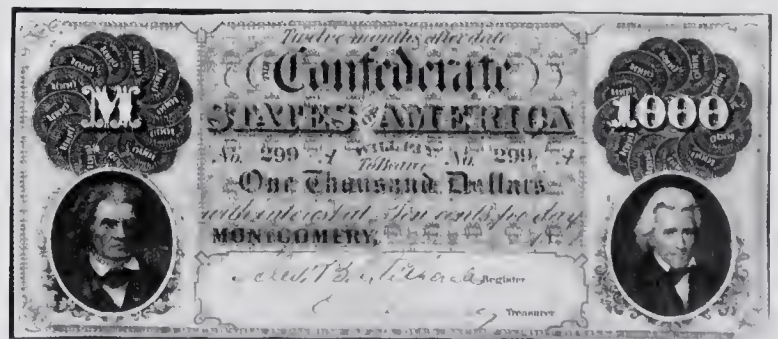 Twelve months after date
M
THE
Confederate
STATES OF AMERICA
1000
No. 299 A WILL PAY No. 299 A
To Bearer
One Thousand Dollars
with interest at Ten cents per day
MONTGOMERY,
Register
Treasurer